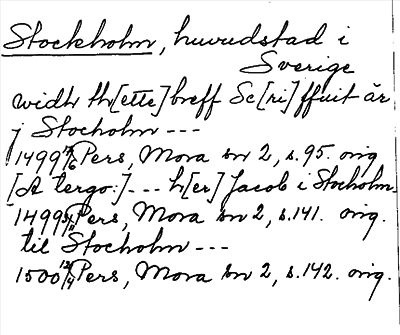 Stockholm, huvudstad i
Sverige
widh th[ette] breff Sc[ri]ffuit är
j Stocholm ---
1499 Pers, Mora sn 2, s.95. orig
[A tergo:] --- h[er] Jacob i Stocholm.
1499 Pers, Mora sn 2, s.141. orig.
till Stocholm ---
1500 Pers, Mora sn 2, s.142. orig.